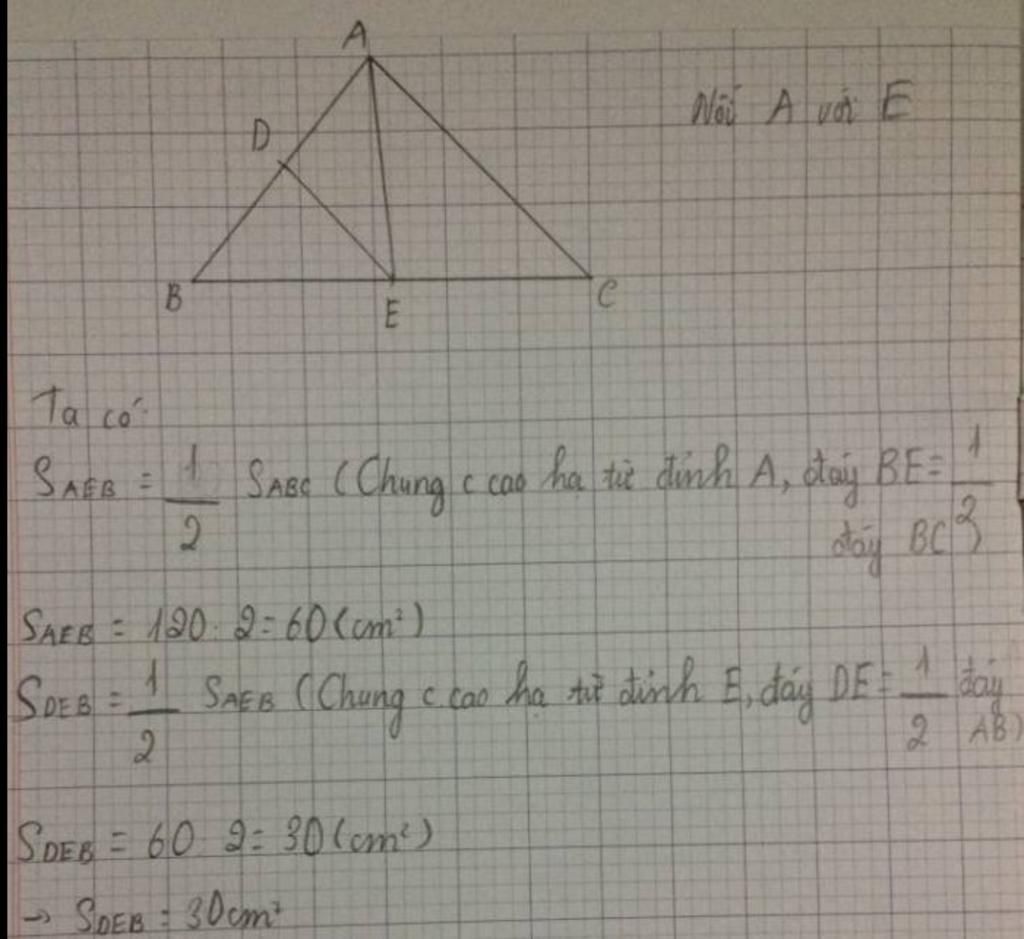 A
Nối A với E
D
B
E
C
Ta có:
S AEB = 1/2 S ABC (Chung c cao hạ từ đỉnh A, đáy BE = 1/2
đáy BC)
S AEB = 120 : 2 = 60 (cm²)
S DEB = 1/2 S AEB (Chung c cao hạ từ đỉnh E, đáy DE = 1/2 đáy
AB)
S DEB = 60 : 2 = 30 (cm²)
→ S DEB = 30cm²